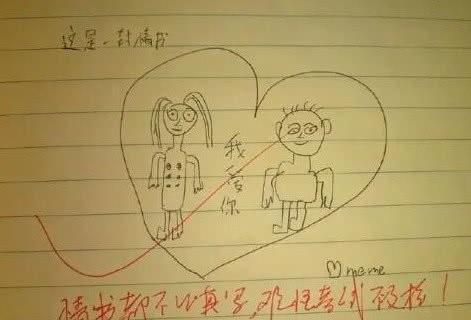 这是一封情书
我爱你
♡ meme
情书都不认真写,难怪考试不及格!